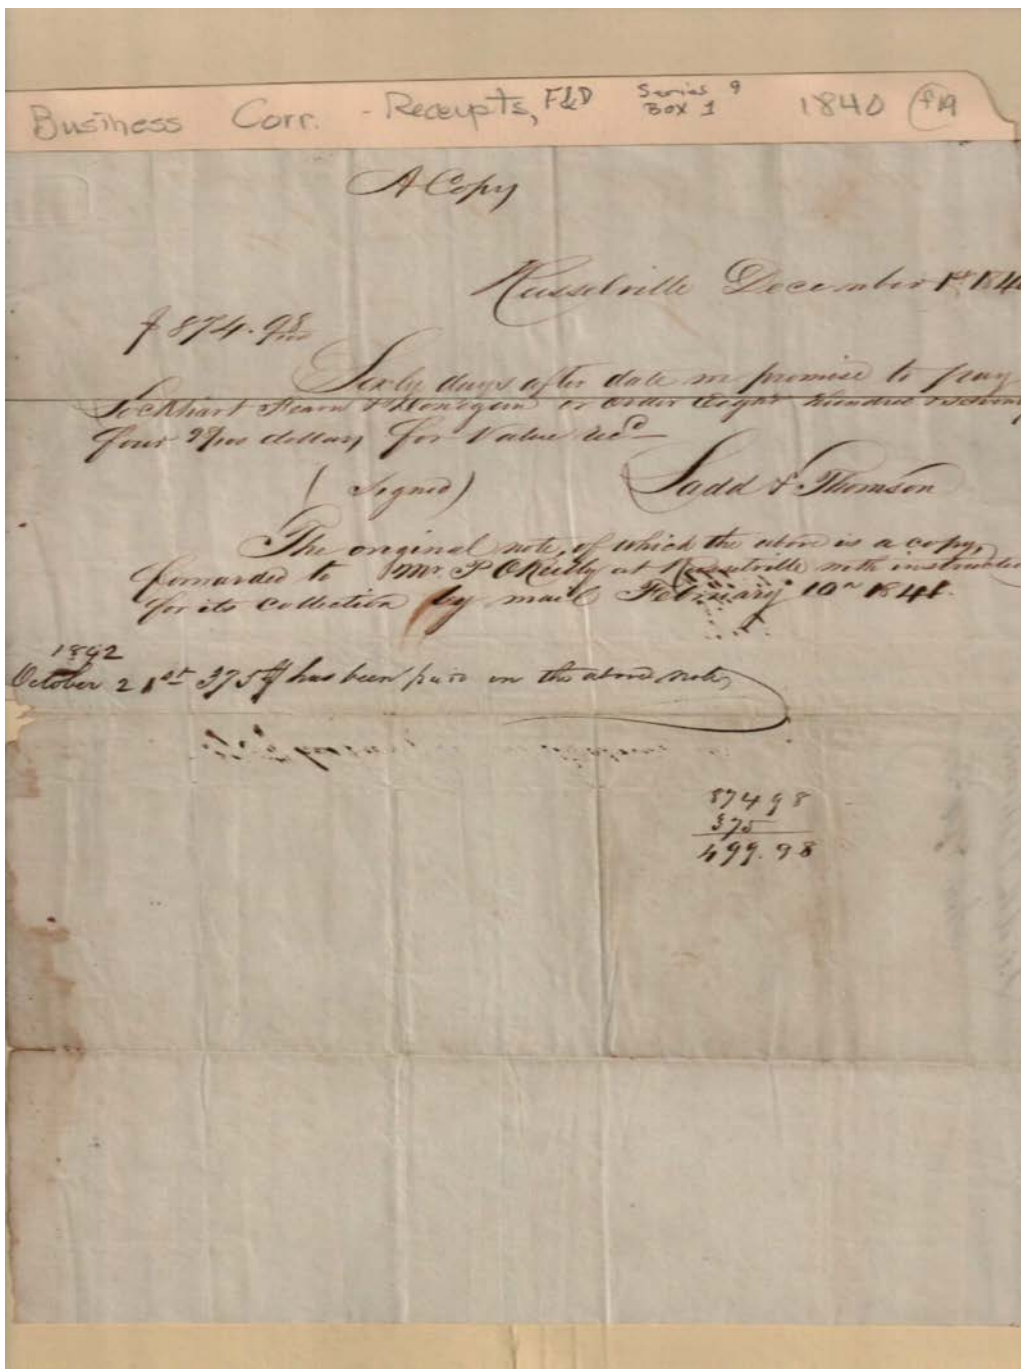 Business Corr. - Receipts, F&D Series 9 Box 1 1840 f19
A Copy
Russelville December 1st 184
$ 874. 98/100
Sixty days after date we promise to pay
Lockhart Fearn & Donegan or order Eight hundred & seventy
four 98/100 dollars for Value recd
(Signed) Ladd & Thomson
The original note, of which the above is a copy,
forwarded to Mr. P OReilly at Russelville with instructio
for its collection by mail February 10th 1841.
1842
October 21st 375 $ has been paid on the above note
874 98
375
499.98